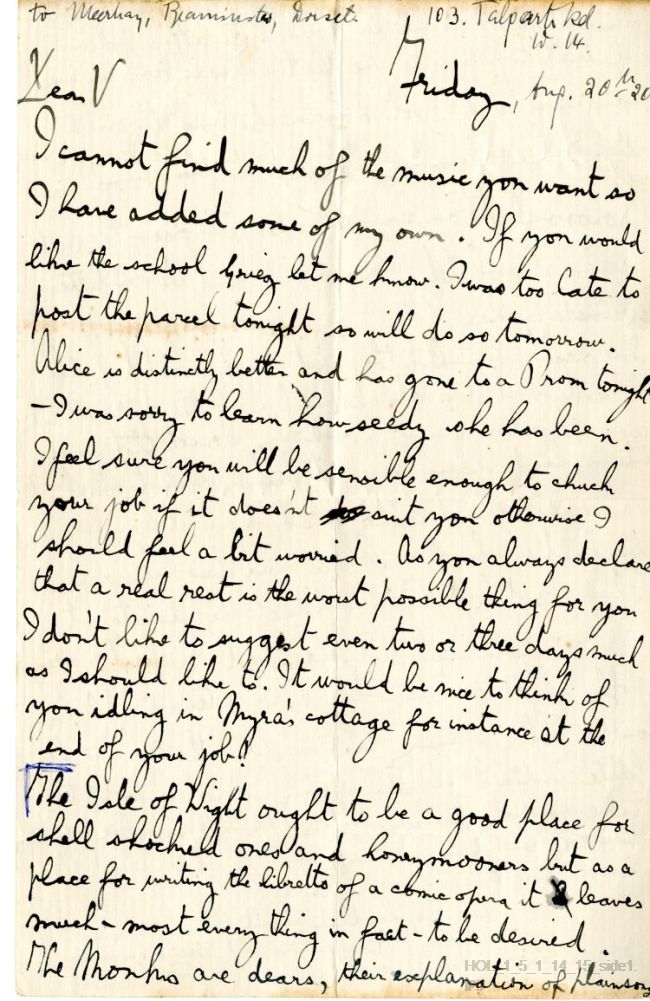 to Meerhay, Beaminster, Dorset. 103. Talgarth Rd.
W. 14.
Dear V
Friday, Aug. 20th 20
I cannot find much of the music you want so
I have added some of my own. If you would
like the school Grieg let me know. I was too late to
post the parcel tonight so will do so tomorrow.
Alice is distinctly better and has gone to a Prom tonight
- I was sorry to learn how seedy she has been.
I feel sure you will be sensible enough to chuck
your job if it does'nt suit you otherwise I
should feel a bit worried. As you always declare
that a real rest is the worst possible thing for you
I don't like to suggest even two or three days much
as I should like to. It would be nice to think of
you idling in Myra's cottage for instance at the
end of your job!
The Isle of Wight ought to be a good place for
shell shocked ones and honeymooners but as a
place for writing the libretto of a comic opera it leaves
much - most everything in fact - to be desired.
The Monks are dears, their explanation of plainsong
HOL_1_5_1_14_15_side1.